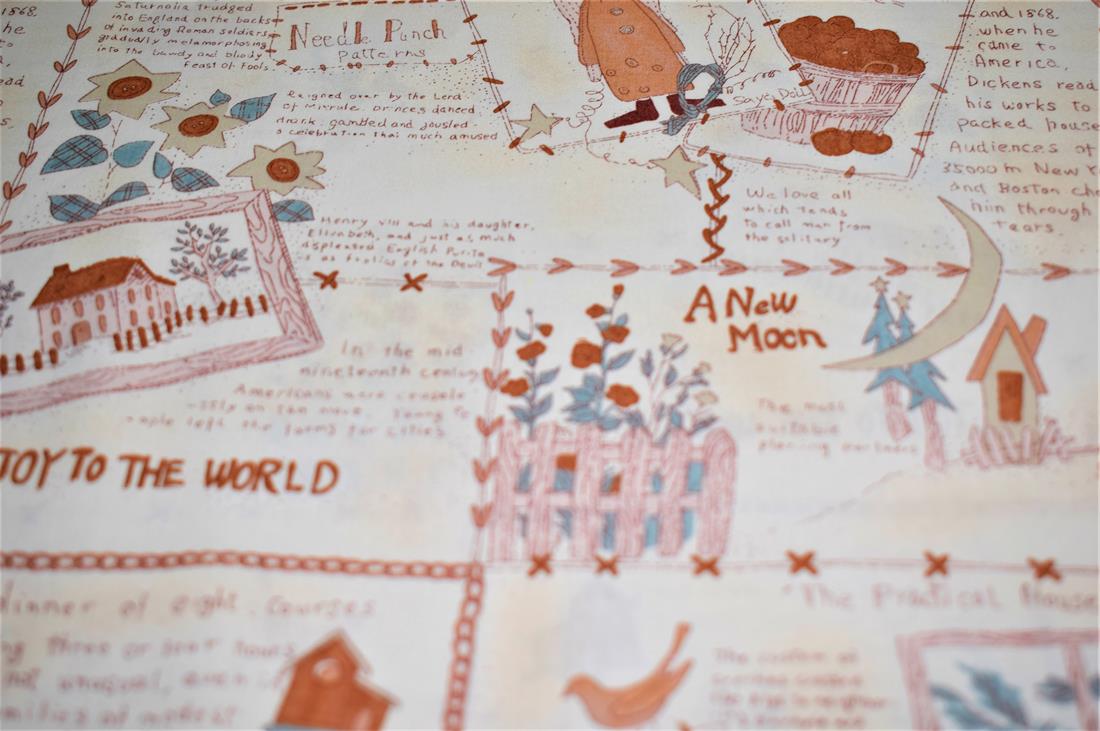 1868.
he
ead
Saturnalia trudged
into England on the backs
of invading Roman soldiers
gradually metamorphosing
into the bawdy and bloody
Feast of Fools.
Needle Punch
patterns
Reigned over by the Lord
of Misrule. princes danced
drank, gambled and jousled
a celebration that much amused
Henry VIII and his daughter,
Elizabeth, and just as much
displeased English Purita
as foolies of the Devil
Says Dolly
and 1868.
when he
came to
America.
Dickens read
his works to
packed house
Audiences of
35000 in New Y
and Boston ch
him through
tears.
We love all
which tends
to call man from
the solitary
A New
Moon
The most
suitable
planting partners
In the mid
nineteenth century
Americans were
on the move. Young
people left the farms for cities
JOY TO THE WORLD
dinner of eight courses
ng three or four hours
not unusual, even
milies of modest
"The Practical House
The custom of